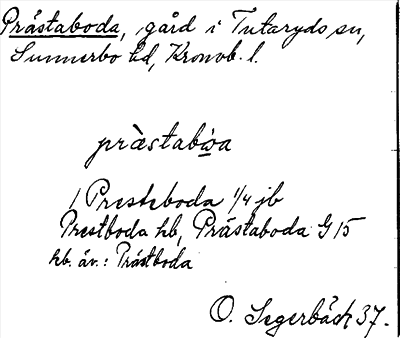 Prästaboda, gård i Tutaryds sn,
Sunnerbo hd, Kronob. l.
pràstabωa
/ Presteboda 1/4 jb
Prestboda hb, Prästaboda G 15
hb. äv.: Prästboda
O. Segerbäck 37.